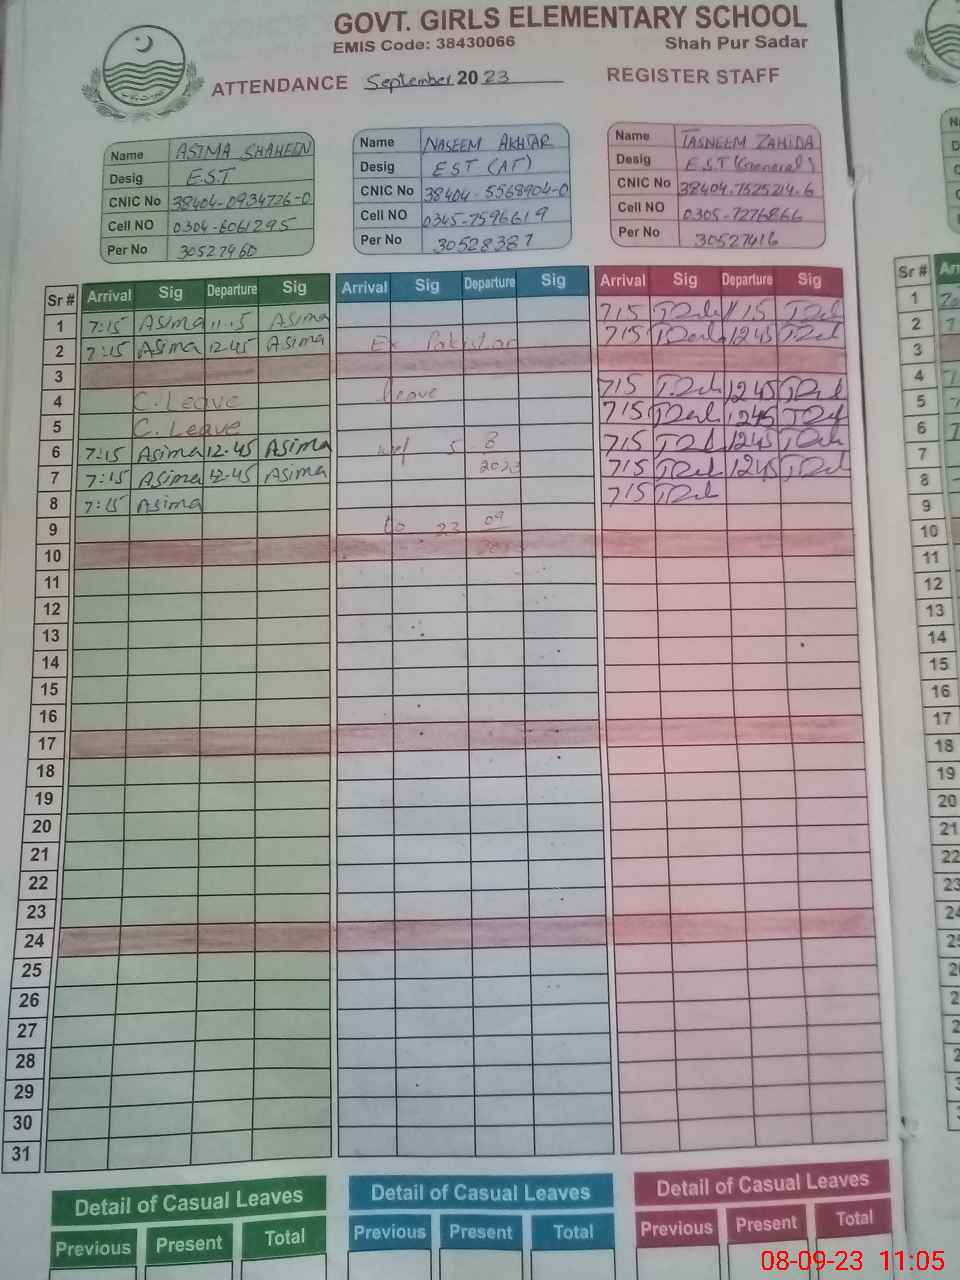 GOVT. GIRLS ELEMENTARY SCHOOL
EMIS Code: 38430066 Shah Pur Sadar
ATTENDANCE September 2023 REGISTER STAFF
Name ASIMA SHAHEEN
Desig E.S.T
CNIC No 38404-0934726-0
Cell NO 0304-6061295
Per No 30527960
Name NASEEM AKHTAR
Desig EST (AT)
CNIC No 38404-5568904-0
Cell NO 0345-7596619
Per No 30528387
Name TASNEEM ZAHIDA
Desig E.S.T (General)
CNIC No 38404.7525214-6
Cell NO 0305-7276866
Per No 30527416
Sr # Arrival Sig Departure Sig Arrival Sig Departure Sig Arrival Sig Departure Sig Sr #
1 7:15 Asima 11.15 Asima 715 1115 1
2 7:15 Asima 12.45 Asima Ex Pakistan 715 1245 2
3 3
4 C. Leave leave 715 1245 4
5 C. Leave 715 1245 5
6 7:15 Asima 12.45 Asima 5 8 715 1245 6
7 7:15 Asima 12.45 Asima 2023 715 1245 7
8 7:15 Asima 715 8
9 to 23 09 9
10 2023 10
11 11
12 12
13 13
14 14
15 15
16 16
17 17
18 18
19 19
20 20
21 21
22 22
23 23
24 24
25 25
26
27
28
29
30
31
Detail of Casual Leaves Detail of Casual Leaves Detail of Casual Leaves
Previous Present Total Previous Present Total Previous Present Total
08-09-23 11:05